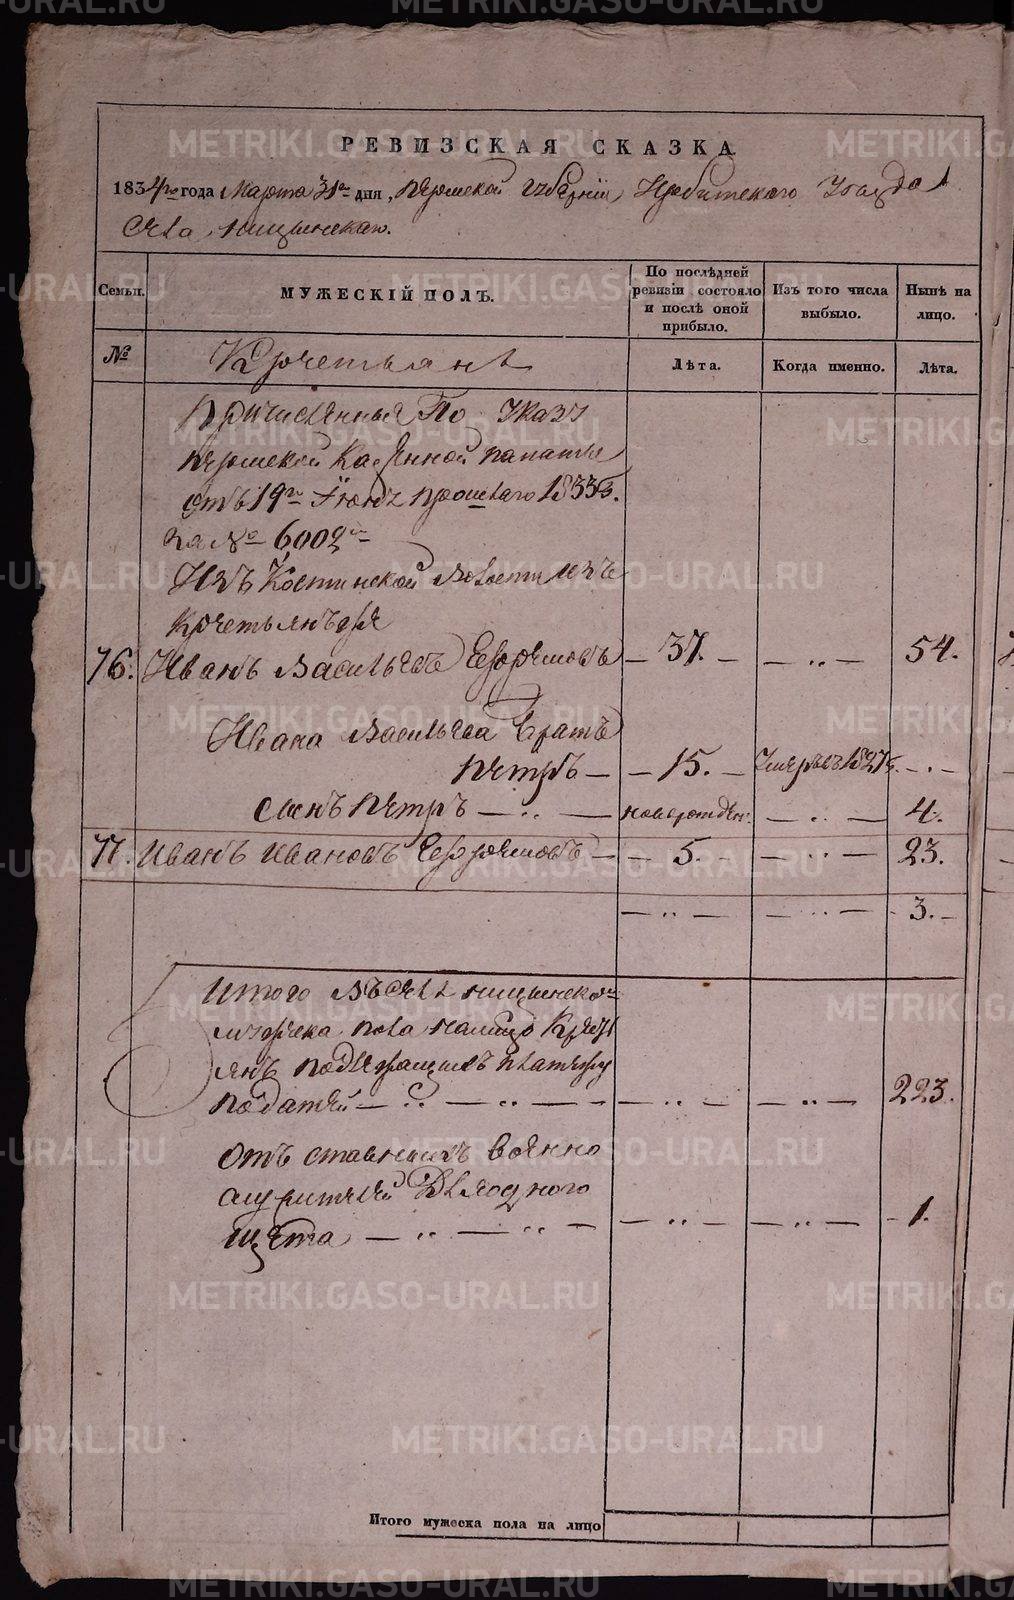 РЕВИЗСКАЯ СКАЗКА
1834го года Марта 31го дня, Пермской губернии Ирбитского Уезда
Села Ницынскаго.
Семьи. МУЖЕСКІЙ ПОЛЪ. По послѣдней ревизіи состояло и послѣ оной прибыло. Изъ того числа выбыло. Нынѣ на лицо.
№ Крестьяне Лѣта. Когда именно. Лѣта.
Причисленные По Указу
Пермской Казенной палаты
отъ 19го Июня прошлаго 1833г.
за № 6002м
Изъ Костинской волости изъ
крестьянъ
76. Иванъ Васильевъ — 37. — — „ — 54.
Ивана Васильева братъ
Петръ — — 15. — Умеръ въ 1827г. — „ —
Сынъ Петръ — „ — новорожден. — „ — 4.
77. Иванъ Ивановъ — — 5. — „ — 23.
— „ — — „ — — 3. —
Итого въ селе Ницынском
мужеска пола налицо Кресть
янъ подлежащихъ платежу
податей — „ — „ — — „ — — „ — 223.
Отъ ставныхъ военно
служителей
щета — „ — „ — — „ — — „ — — 1.
Итого мужеска пола на лицо
METRIKI.GASO-URAL.RU